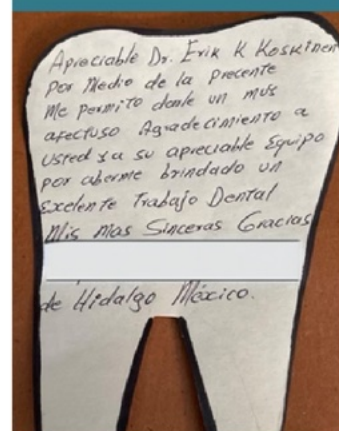 Apreciable Dr. Erik K Koskinen
Por Medio de la precente
Me permito darle un muy
afectuso Agradecimiento a
usted y a su apreciable Equipo
por aberme brindado un
Excelente Trabajo Dental
Mis Mas Sinceras Gracias
de Hidalgo México.